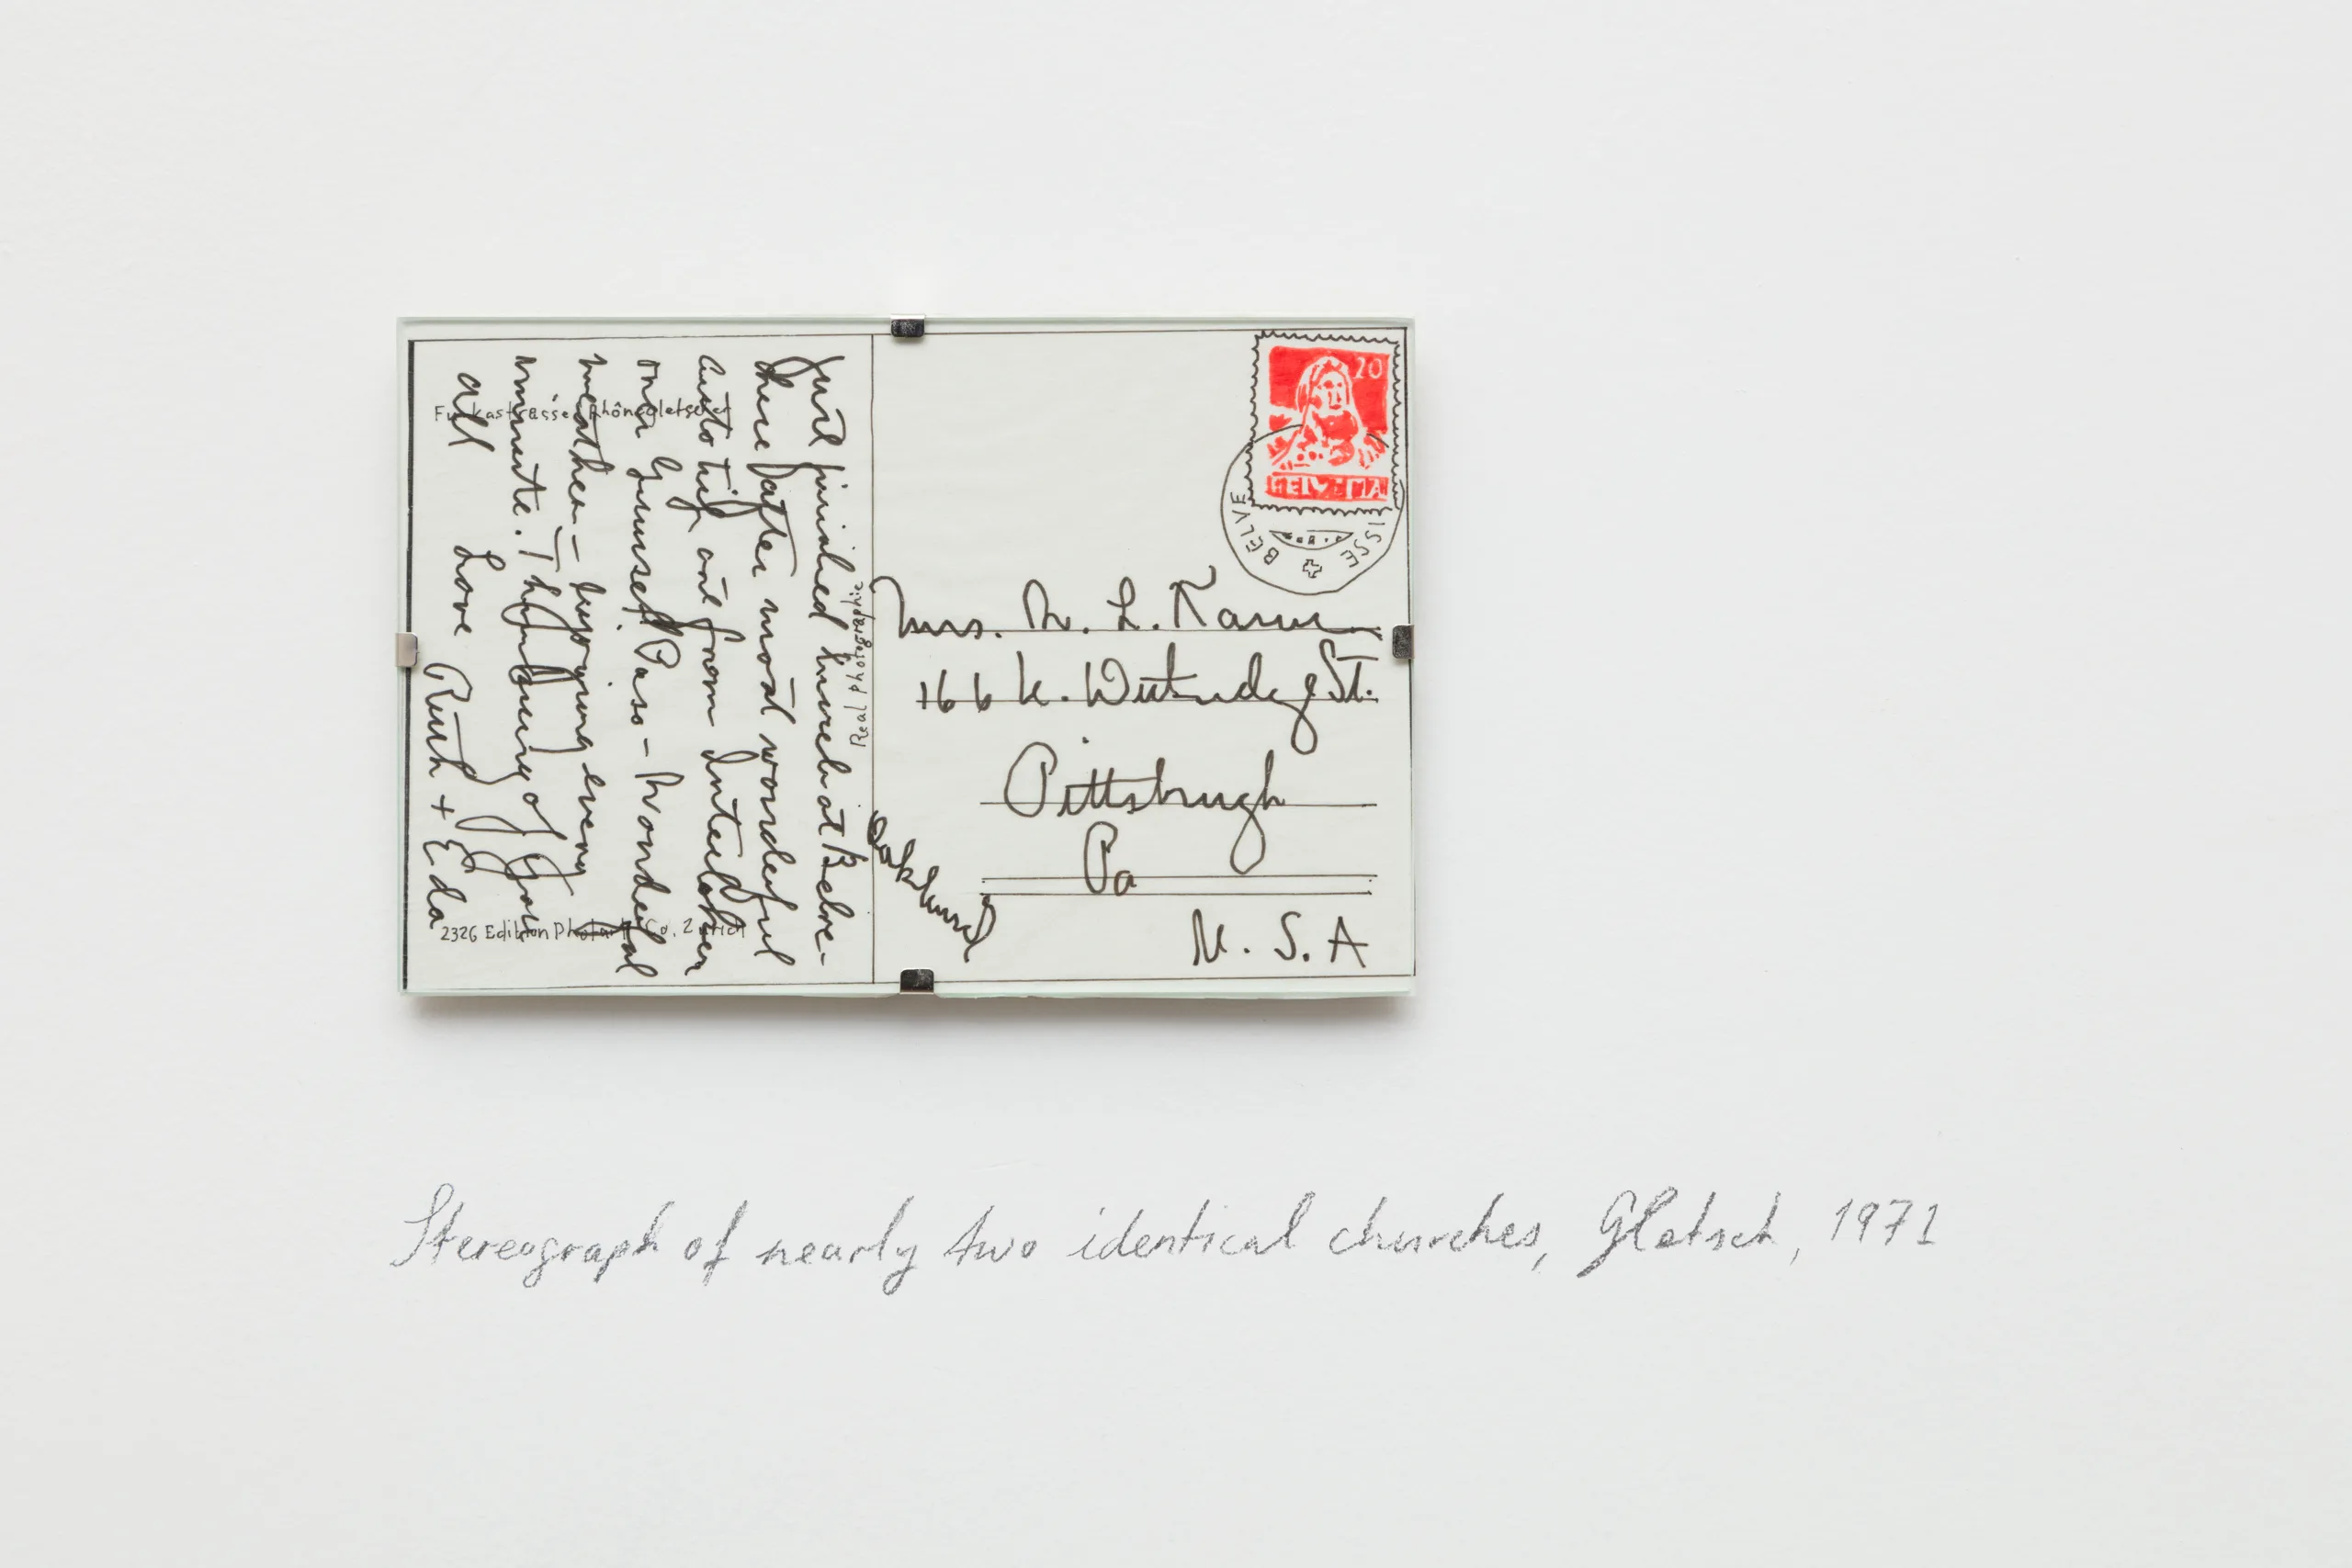 Just finished lunch at Belve-
dere after most wonderful
auto trip out from Interlaken
on Grimsel Pass - Wonderful
weather - enjoying every
minute. Thinking of you
all Love Ruth + Eda
Furkastrasse Rhônegletscher
2326 Edition Photo Co. Zürich
Real photographic
20
HELVETIA
BELVE
ISSE
Mrs. M. L.
166 St.
Pittsburgh
Pa
U. S. A
Stereograph of nearly two identical churches, Gletsch, 1971